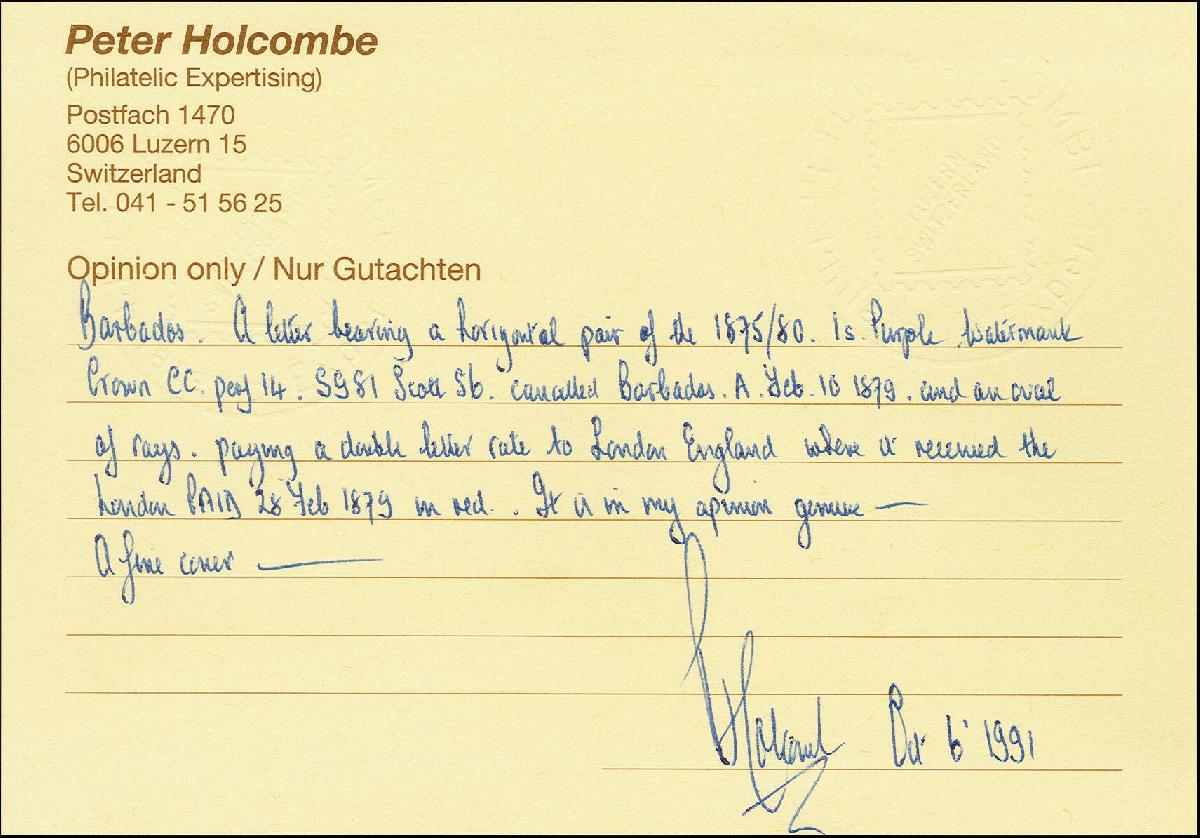 Peter Holcombe
(Philatelic Expertising)
Postfach 1470
6006 Luzern 15
Switzerland
Tel. 041 - 51 56 25
LUZERN
SWITZERLAND
Opinion only / Nur Gutachten
Barbados. A letter bearing a horizontal pair of the 1875/80. 1s. Purple. Watermark
Crown CC. perf 14. SG81 Scott 56. cancelled Barbados. A. Feb. 10 1879. and an oval
of rays. paying a double letter rate to London England where it received the
London PAID 28 Feb 1879 in red. . It is in my opinion genuine —
A fine cover —
Oct 6 1991